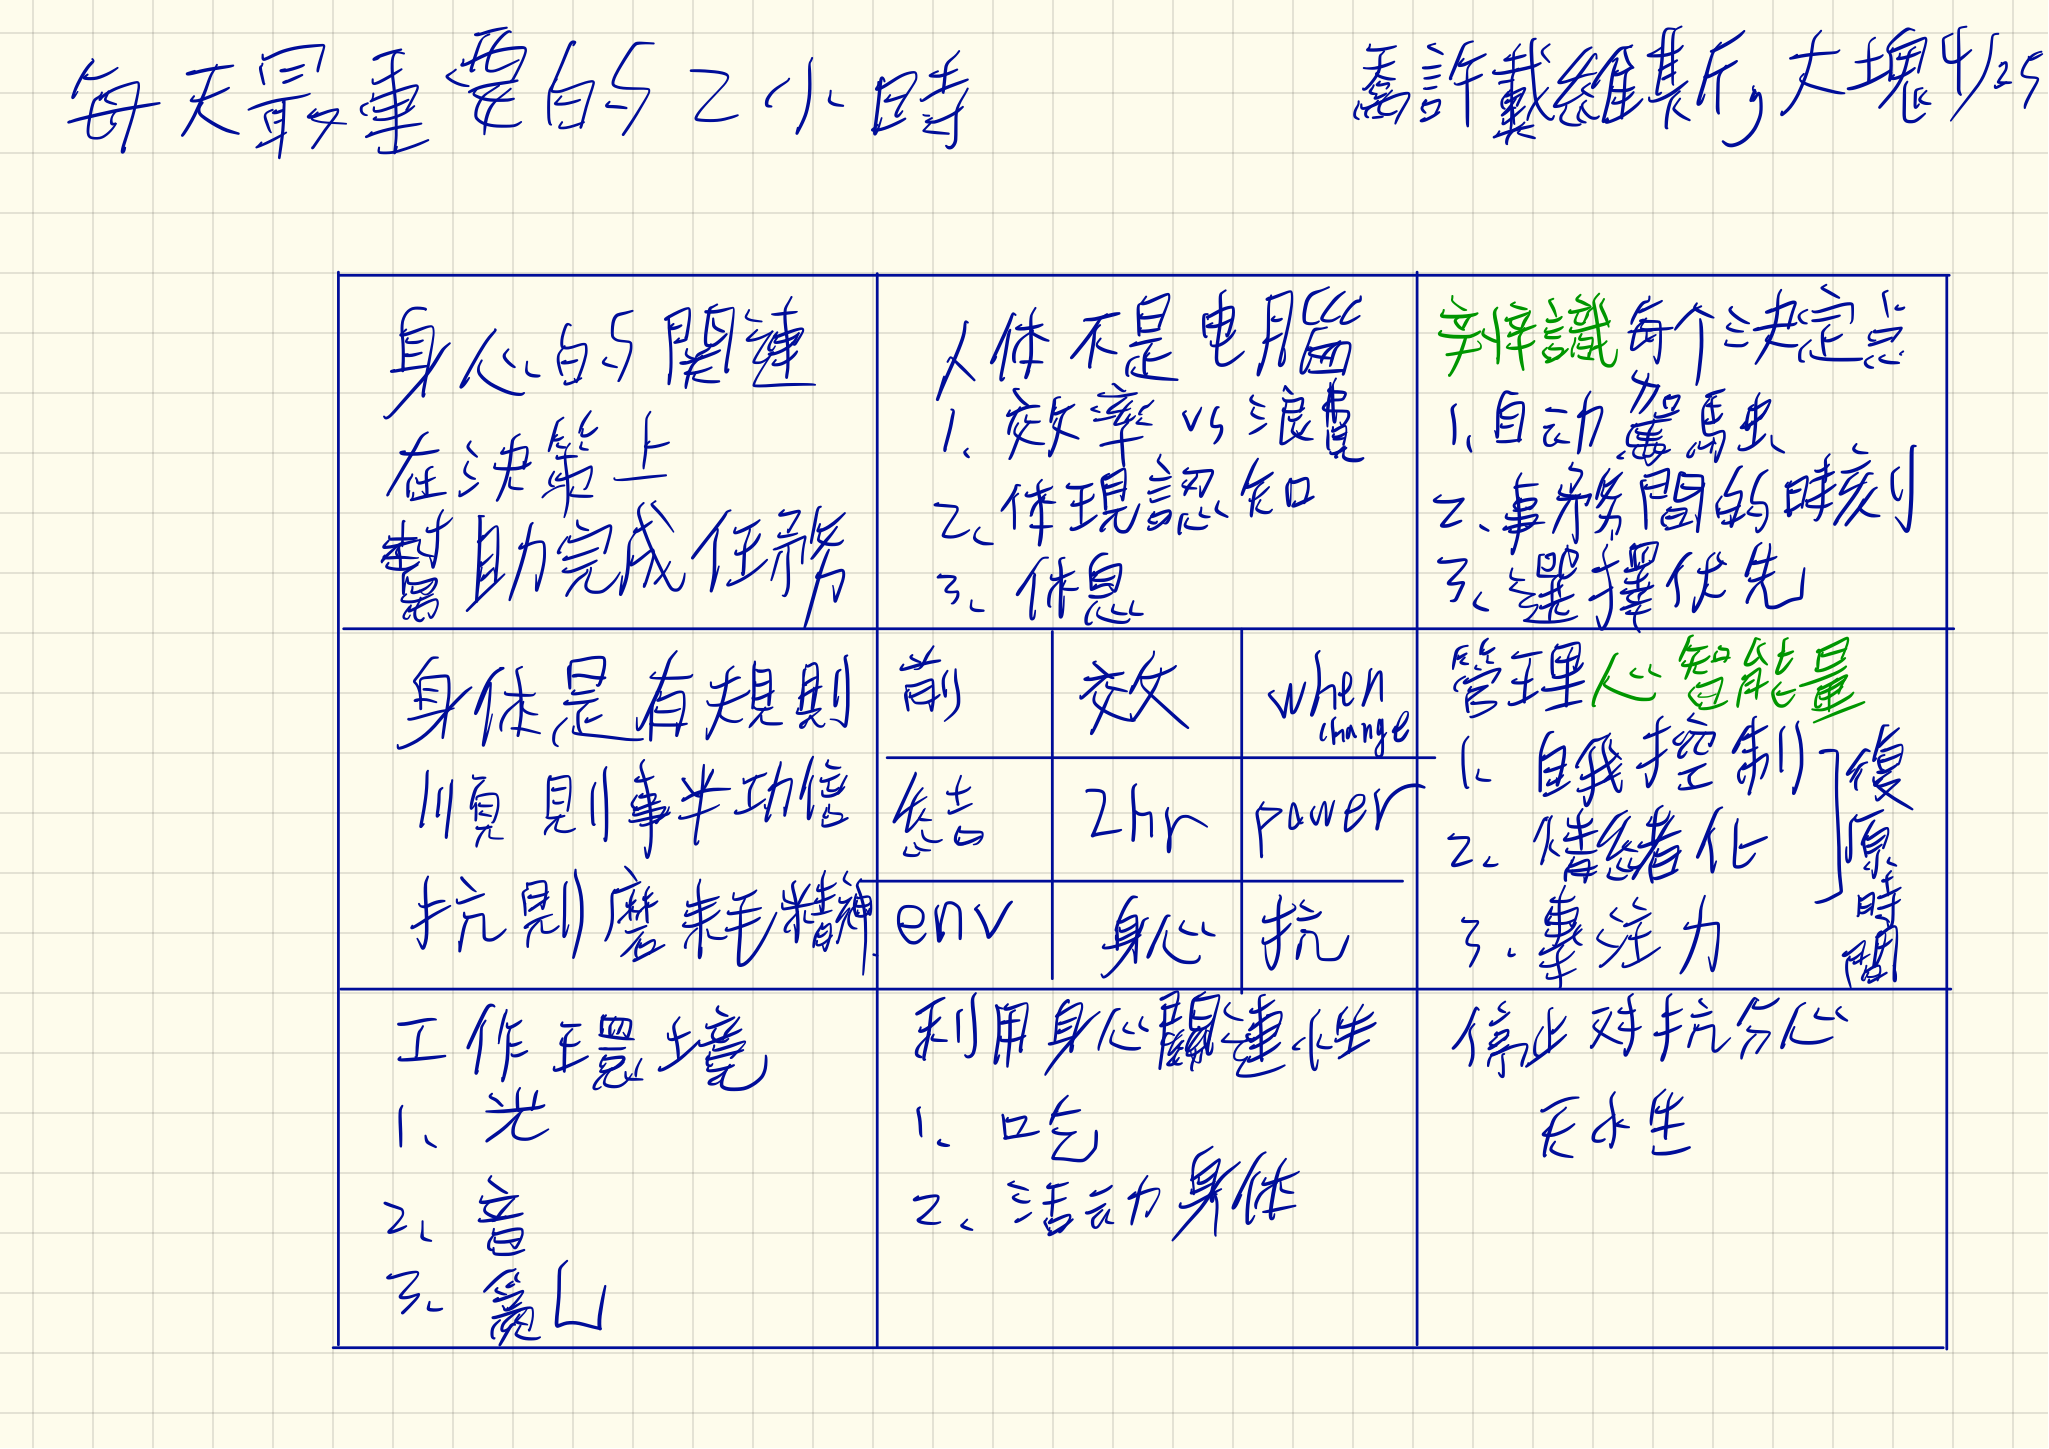 每天最重要的2小時
喬許戴維斯,大塊4/25
身心的関連
在決策上
幫助完成任務
人体不是电腦
1. 效率 vs 浪費
2. 体現認知
3. 休息
辨識每个決定点
1. 自动駕駛
2. 事務間的時刻
3. 選擇优先
身体是有規則
順則事半功倍
抗則磨耗精神
前
效
when
change
結
2hr
power
env
身心
抗
管理心智能量
1. 自我控制
2. 情緒化
3. 專注力
復原時間
工作環境
1. 光
2. 音
3. 亂
利用身心關連性
1. 吃
2. 活动身体
停止对抗分心
天性